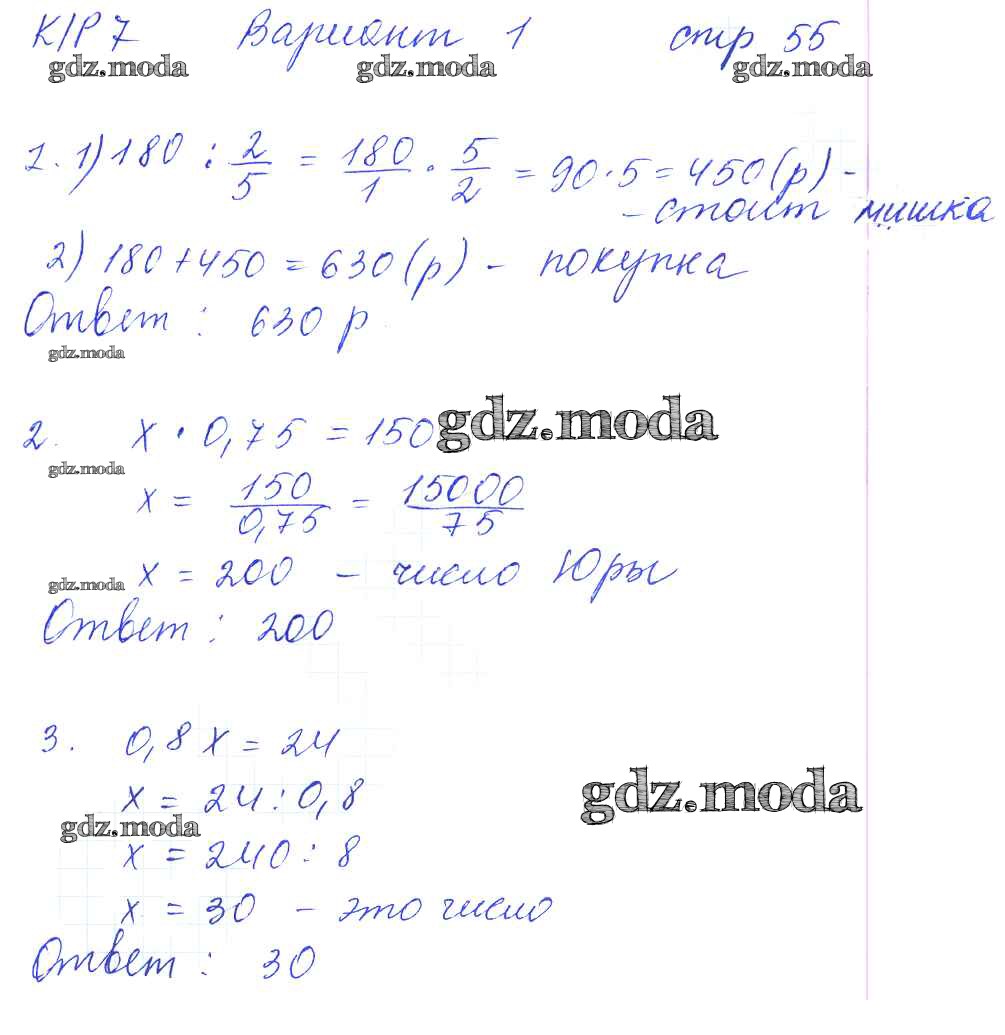 К/Р 7 Вариант 1 стр 55
gdz.moda gdz.moda gdz.moda
1. 1) 180 : 2/5 = 180/1 · 5/2 = 90 · 5 = 450 (р) -
- стоит мишка
2) 180 + 450 = 630 (р) - покупка
Ответ : 630 р.
gdz.moda
2. x · 0,75 = 150 gdz.moda
gdz.moda
x = 150/0,75 = 15000/75
gdz.moda x = 200 - число Юры
Ответ : 200
3. 0,8 x = 24
x = 24 : 0,8 gdz.moda
gdz.moda
x = 240 : 8
x = 30 - это число
Ответ : 30